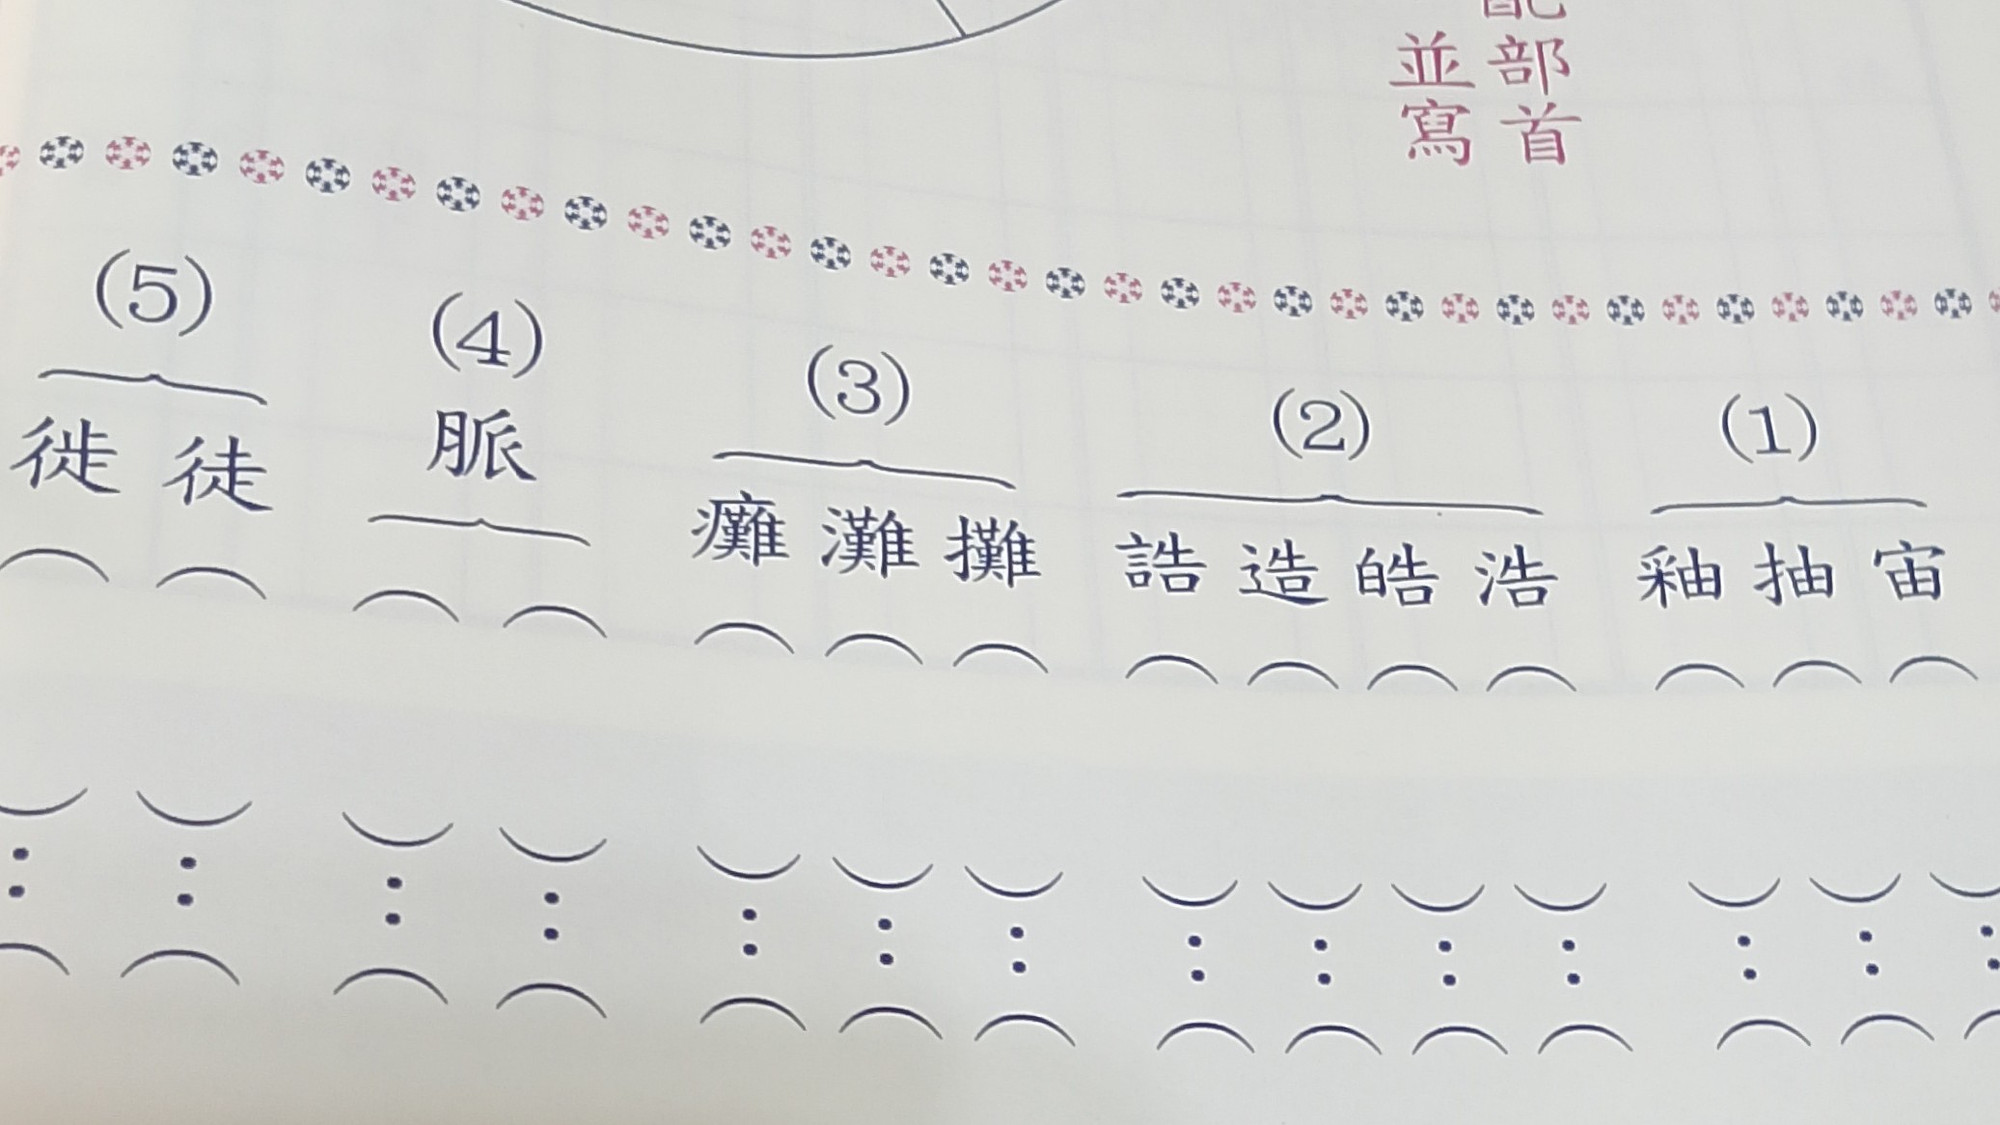 部首
並寫
(1)
宙
抽
釉
(2)
浩
皓
造
誥
(3)
攤
灘
癱
(4)
脈
(5)
徒
徙